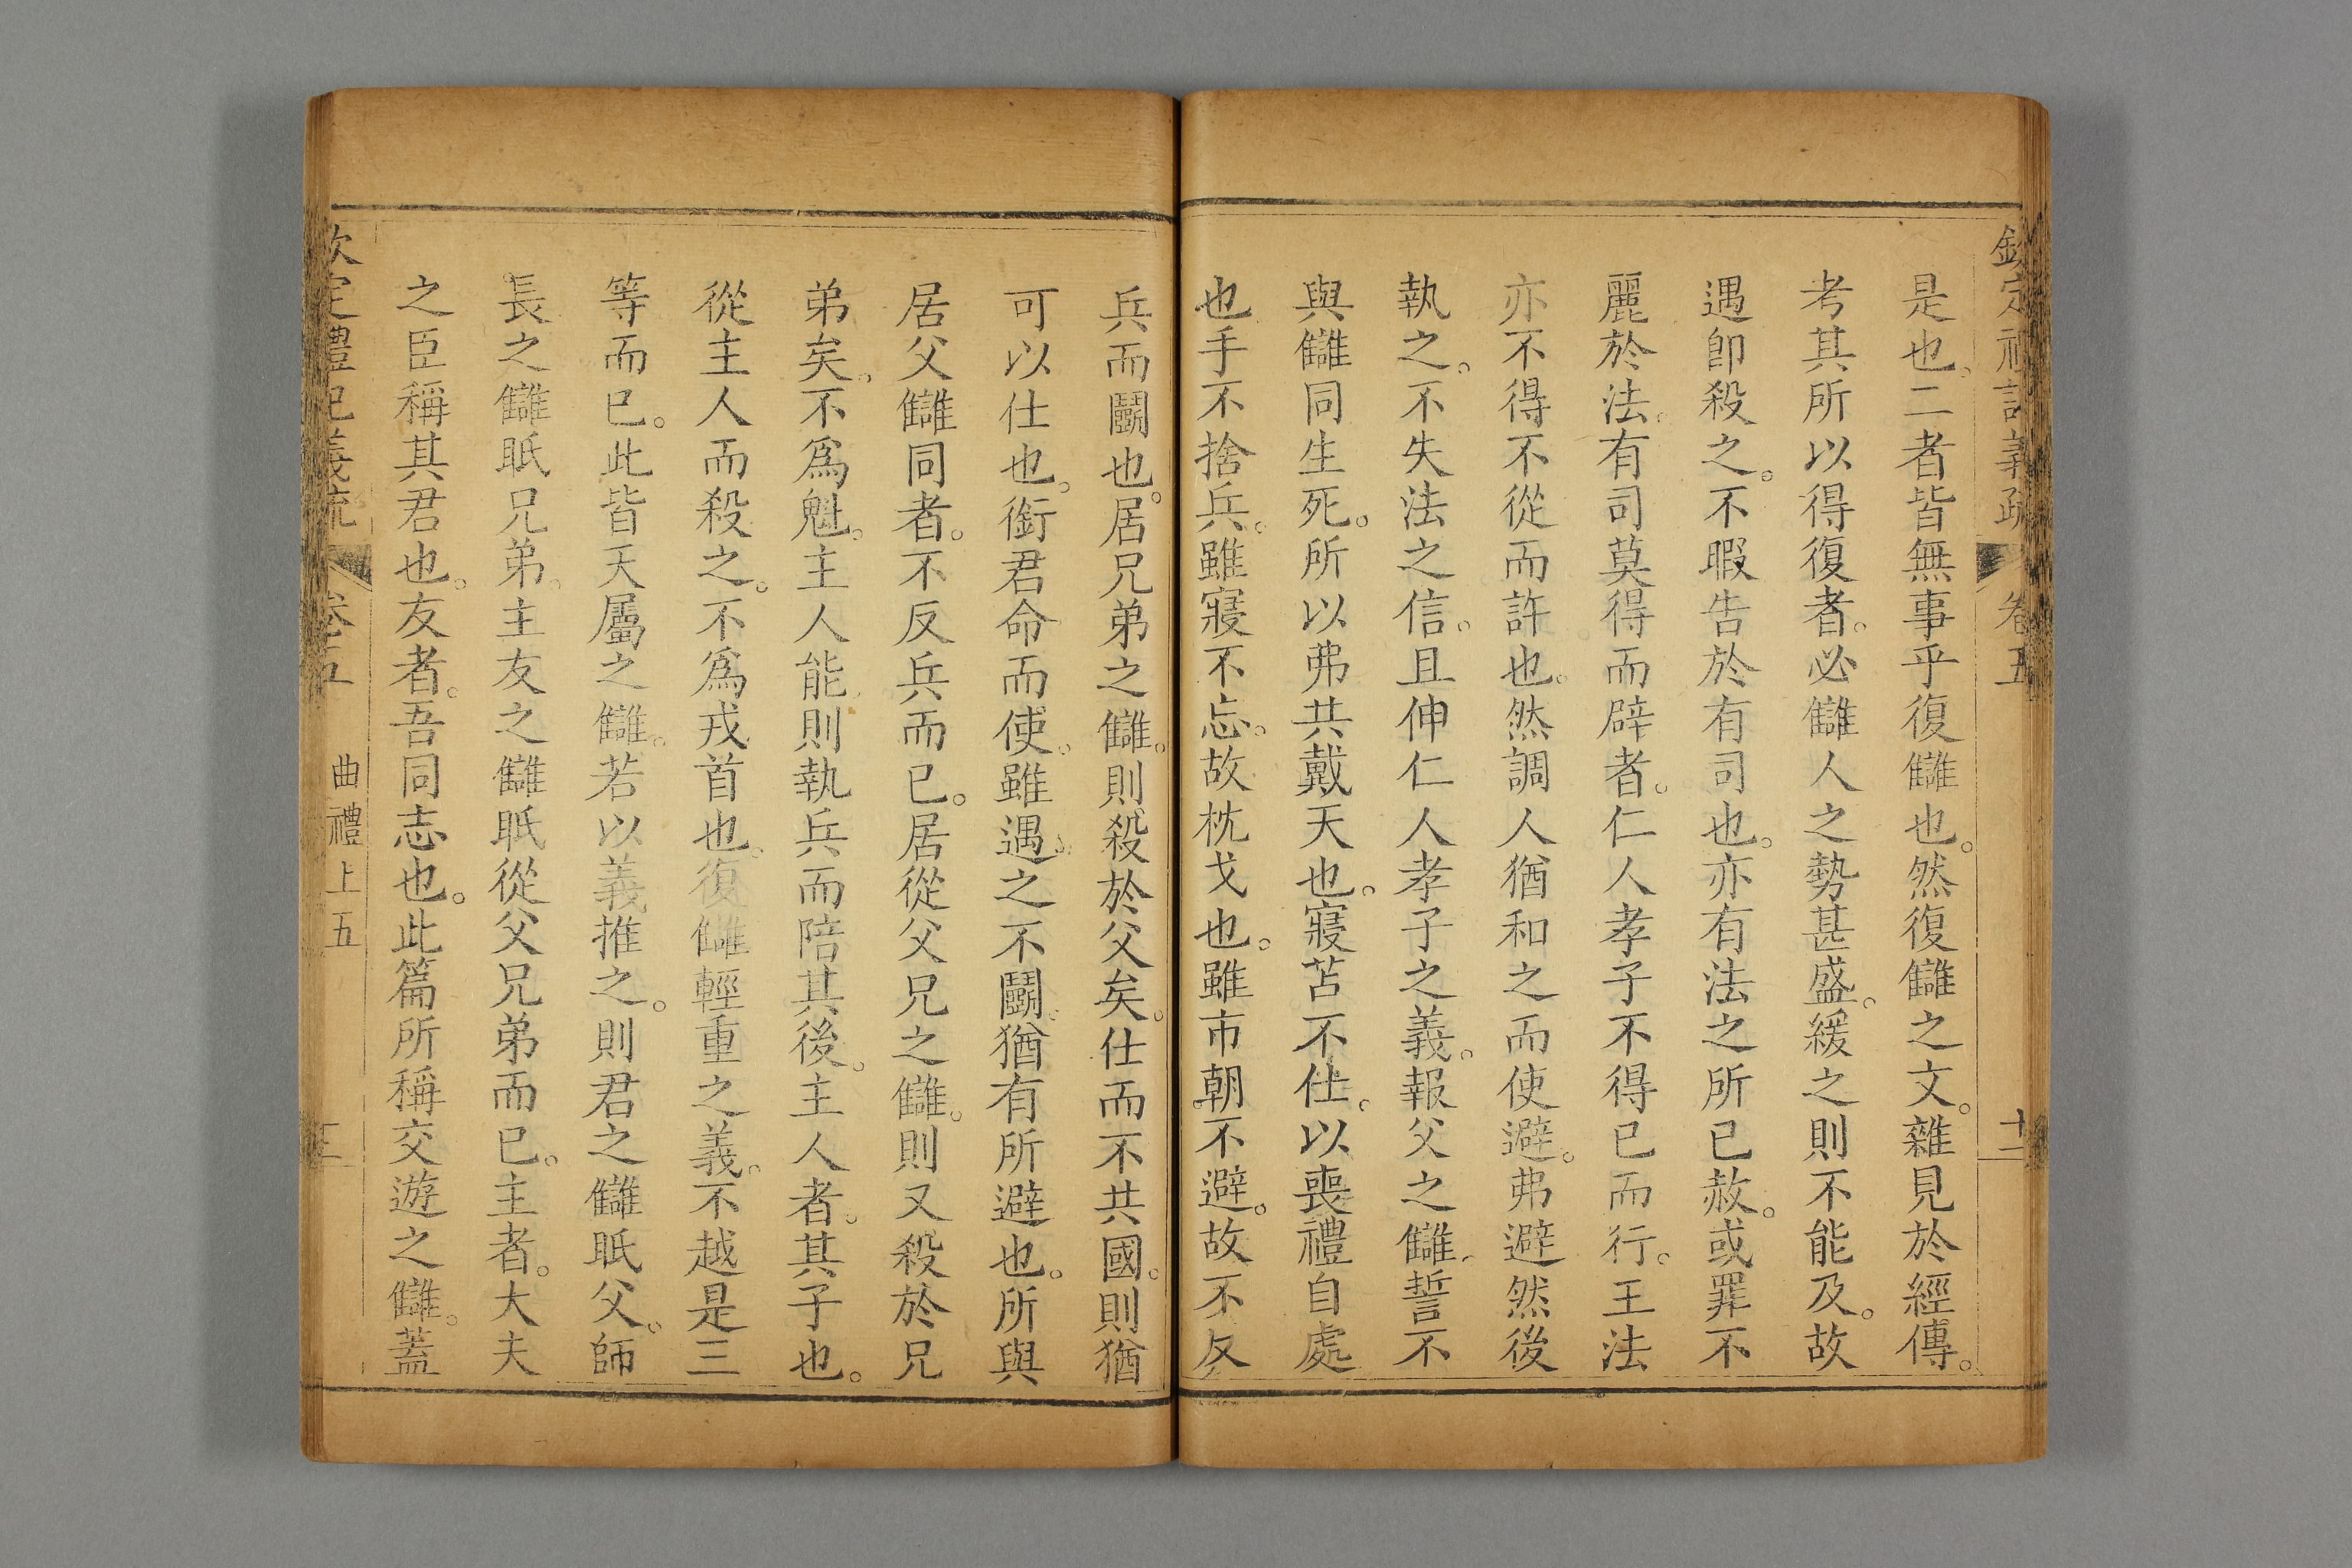 欽定禮記義疏 卷五 十二
是也二者皆無事乎復讎也。然復讎之文。雜見於經傳。
考其所以得復者。必讎人之勢甚盛。緩之則不能及。故
遇卽殺之。不暇告於有司也。亦有法之所已赦。或罪不
麗於法。有司莫得而辟者。仁人孝子不得已而行。王法
亦不得不從而許也。然調人猶和之而使避。弗避然後
執之。不失法之信。且伸仁人孝子之義。報父之讎。誓不
與讎同生死。所以弗共戴天也。寢苫不仕。以喪禮自處
也手不捨兵。雖寢不忘。故枕戈也。雖市朝。不避。故不反
兵而鬭也。居兄弟之讎。則殺於父矣。仕而不共國。則猶
可以仕也。銜君命而使。雖遇之不鬭。猶有所避也。所與
居父讎同者。不反兵而已。居從父兄之讎。則又殺於兄
弟矣。不爲魁。主人能則執兵而陪其後。主人者。其子也。
從主人而殺之。不爲戎首也。復讎輕重之義。不越是三
等而已。此皆天屬之讎。若以義推之。則君之讎眡父。師
長之讎眡兄弟。主友之讎眡從父兄弟而已。主者。大夫
之臣稱其君也。友者。吾同志也。此篇所稱交遊之讎。蓋
欽定禮記義疏 卷五 曲禮上五